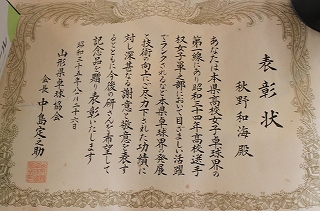 表彰状
秋野和海殿
あなたは本県高校女子卓球界の
第一線にあり昭和三十四年高校選手
权女子単之部において目ざましい活躍
でランクされるなど本県卓球界の発展
と技術の向上に尽力下された功績に
対し深甚なる謝意と敬意を表す
るとともに今後の研さんを希望して
記念品を贈り表彰いたします
昭和三十五年八月二十六日
山形県卓球協会
会長 中島定之助